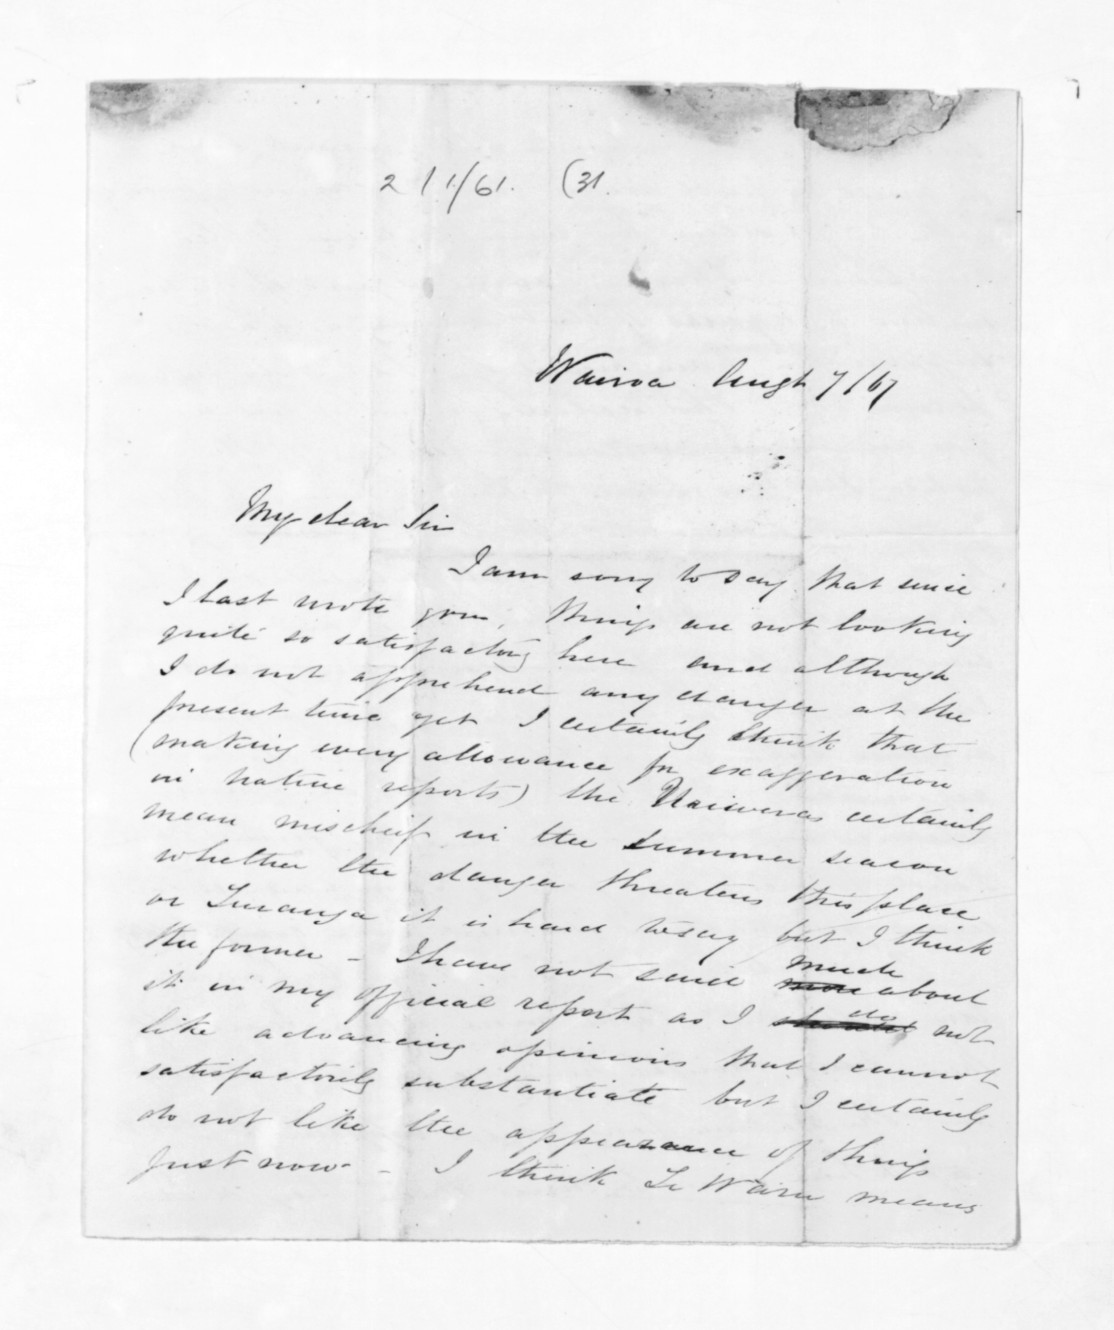 2 / 1/61. (31.
Wairoa Augt 7/67
My dear Sir
I am sorry to say that since
I last wrote you, things are not looking
quite so satisfactory here and although
I do not apprehend any danger at the
present time yet I certainly think that
(making every allowance for exaggeration
in native reports) the Uriweras certainly
mean mischief in the summer season
whether the danger threatens this place
or Turanga it is hard to say but I think
the former - I have not said much about
it in my official report as I do not
like advancing opinions that I cannot
satisfactorily substantiate but I certainly
do not like the appearance of things
just now - I think Te Waru means